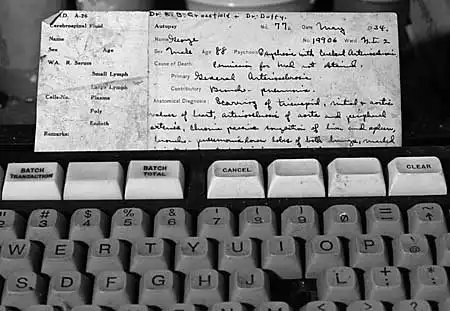 D. A-26
Cerebrospinal Fluid
Name
Sex Age
WA. R. Serum
Small Lymph
Large Lymph
Cells-No. Plasma
Poly
Endoth
Remarks:
Dr. E. B. + Dr. Duffy.
Autopsy No. 77. Date May 1934.
Name George No 19906 Ward
Sex Male Age 88 Psychosis Psychosis with Cerebral Arteriosclerosis
Cause of Death: for not stated.
Primary General Arteriosclerosis
Contributory Broncho-pneumonia.
Anatomical Diagnosis Scarring of tricuspid, mitral + aortic
valves of heart, arteriosclerosis of aorta and peripheral
arteries, chronic passive congestion of liver and spleen
broncho-pneumonia lower lobes of both lungs, marked
BATCH TRANSACTION
BATCH TOTAL
CANCEL
CLEAR
" 2 # 3 $ 4 % 5 & 6 ' 7 ( 8 ) 9 0 = ~
W E R T Y U I O P @
S D F G H J L + ; *
< > ?